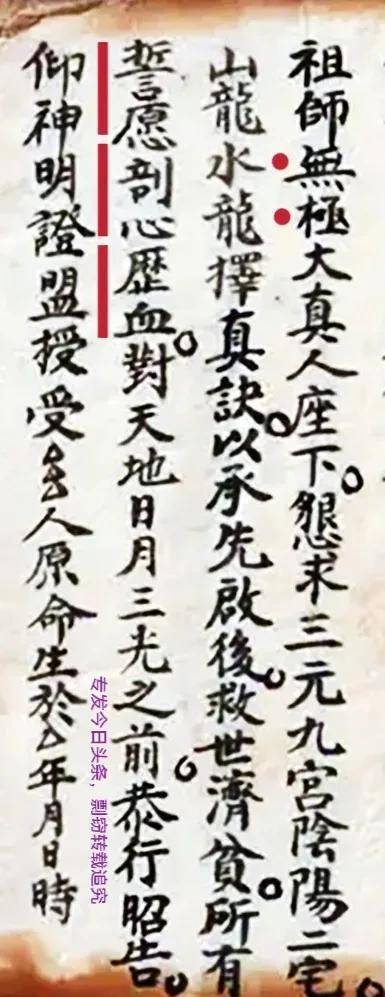 祖師無極大真人座下。懇求三元九宮陰陽二宅。
山龍水龍擇真訣。以承先啟後。救世濟貧。所有
誓愿剖心歷血。對天地日月三光之前。恭行昭告。
仰神明證盟授受人原命生於厶年月日時
专发今日头条，剽窃转载追究